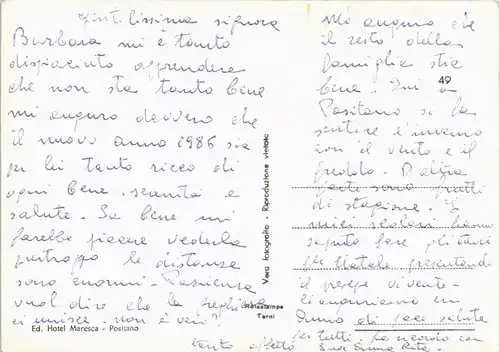 Gent.lissima signora
Barbara mi è tanto
dispiaciuto apprendere
che non sta tanto bene
mi auguro davvero che
il nuovo anno 1986 sia
per lei tanto ricco di
ogni bene, serenità e
salute. Sa bene mi
farebbe piacere vederla
purtroppo le distanze
sono enormi. Pazienza
vuol dire che la
ci unisce. non è vero?
tanto affetto
Ed. Hotel Maresca - Positano
Vera fotografia - Riproduzione vietata
Rotostampa
Terni
49
Mi auguro che
il resto della
famiglia stia
bene. Qui a
Positano si fa
sentire è inverno
con il vento e il
freddo. D'altra
parte sono frutti
di stagione. I
miei scolari hanno
saputo fare gli
per Natale presentando
il presepe vivente.
in
Anno di pace salute
per tutti. La ricordo con
Suor Anna Rita